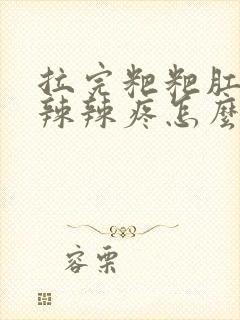 拉完粑粑肛
辣辣疼怎麼
容栗